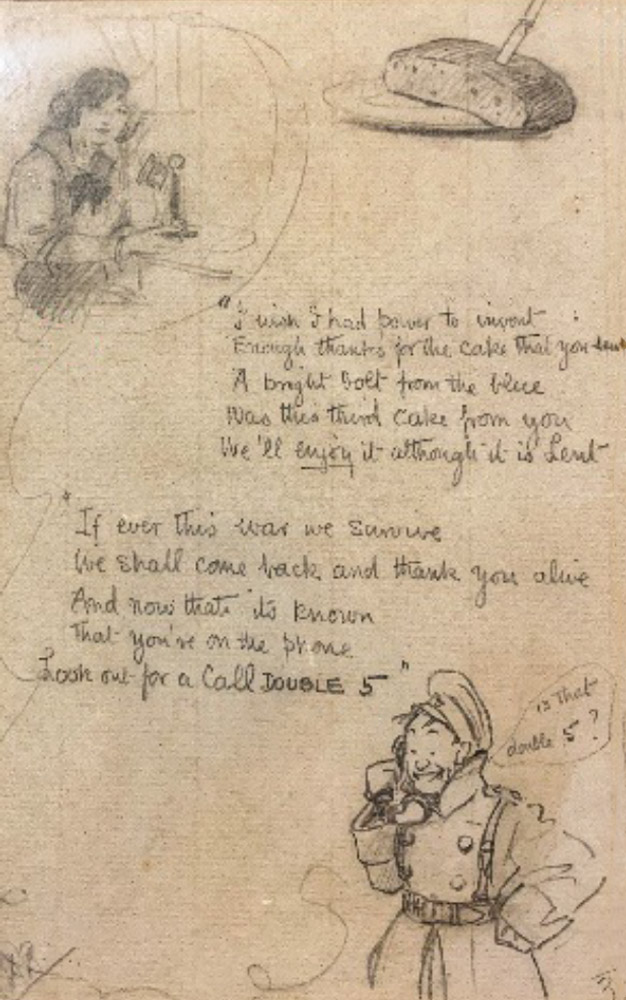 "I wish I had power to invent
Enough thanks for the cake that you sent
A bright bolt from the blue
Was this third cake from you
We'll enjoy it although it is Lent
"If ever this war we survive
We shall come back and thank you alive
And now that its known
That you're on the phone
Look out for a Call DOUBLE 5"
is that
double 5?